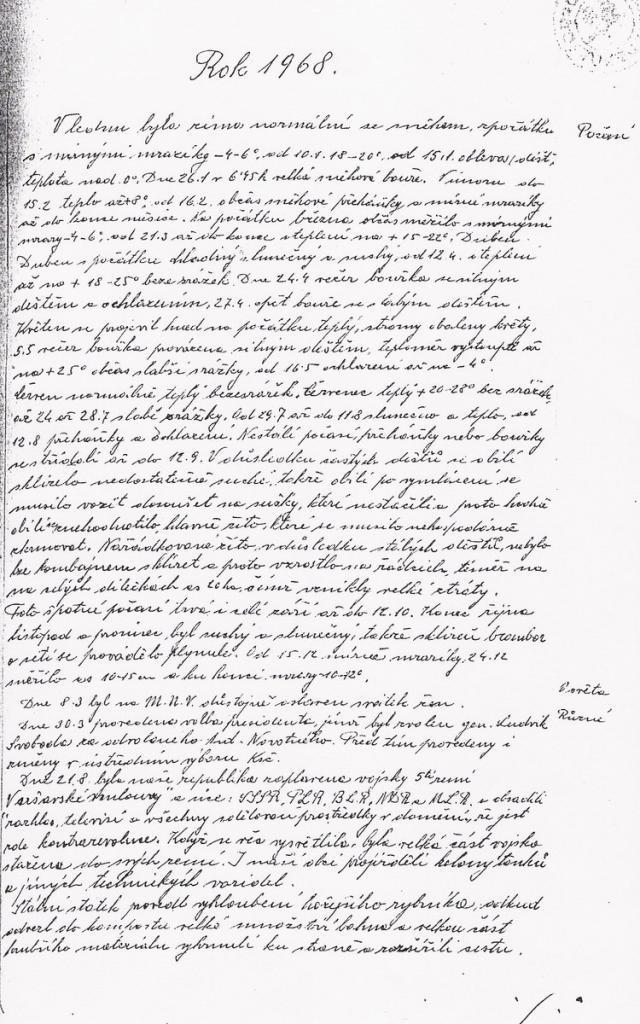 Rok 1968.
V lednu byla zima normální se sněhem, zpočátku
Počasí
s mírnými mrazíky -4-6°, od 10.1. 18-20°, od 15.1. obleva, déšť,
teplota nad 0°. Dne 26.1 v 6 45 h velká sněhová bouře. V únoru do
15.2 teplo až +8°, od 16.2. občas sněhové přeháňky a mírné mrazíky
až do konce měsíce. Ku počátku března občas měřilo s mírnými
mrazy -4-6°, od 21.3 až do konce oteplení na +15-22°. Duben
Duben s počátku chladný slunečný a suchý, od 12.4. oteplení
až na +18-25° beze srážek. Dne 24.4 večer bouřka se silným
deštěm a ochlazením, 27.4. opět bouře se slabým deštěm.
Květen se projevil hned na počátku teplý, stromy obaleny květy,
5.5 večer bouřka provázena silným deštěm, teploměr vystoupil až
na +25° občas slabší srážky, od 16.5 ochlazení až na -4°.
Červen normálně teplý beze srážek, červenec teplý +20-28° bez srážek
až 24 až 28.7 slabé srážky. Od 29.7 až do 11.8 slunečno a teplo, od
12.8 přeháňky a ochlazení. Nestálé počasí, přeháňky nebo bouřky
se střídali až do 12.9. V důsledku častých dešťů se obilí
sklízelo nedostatečně suché, takže obilí po vymlácení se
muselo vozit dosoušet na sušky, které nestačili a proto hodně
obilí se znehodnotilo, hlavně žito, které se muselo nehospodárně
zkrmovat. Nařádkované žito, v důsledku stálých dešťů, nebylo
lze kombajnem sklízet a proto vzrostlo na řádcích, téměř na
na celých dílečkách as 20 ha, čímž vznikly velké ztráty.
Toto špatné počasí trvá i celé září až do 12.10. Konec října
listopad a prosinec, byl suchý a slunečný, takže sklizeň brambor
a setí se provádělo plynule. Od 15.12. mírné mrazíky, 24.12
měřilo as 10-15 cm a ku konci mrazy -10-12°.
Osvěta
Dne 8.3 byl na M.N.V. důstojně oslaven svátek žen.
Různé
Dne 30.3 provedena volba presidenta, jímž byl zvolen gen. Ludvík
Svoboda za odvolaného Ant. Novotného. Před tím provedeny i
změny v ústředním výboru Ksč.
Dne 21.8. byla naše republika zaplavena vojsky 5ti zemí
"Varšavské smlouvy" a sice: SSSR, PLR, BLR, NDR a MLR. a obsadili
rozhlas, televizi a všechny sdělovací prostředky v domění, že jest
zde kontrarevoluce. Když se věc vysvětlila, byla velká část vojska
stažena do svých zemí. I naší obcí projížděli kolony tanků
a jiných technických vozidel.
Státní statek provedl vyhloubení hořejšího rybníka, odkud
odvezl do kompostu velké množství bahna a velkou část
hrubšího materiálu vyhrnuli ku straně a rozšířili cestu.